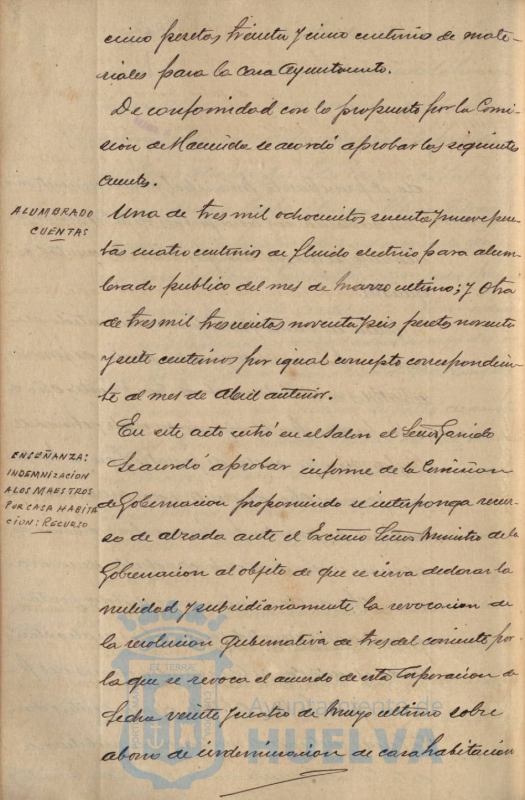 cinco pesetas treinta y cinco centimos de mate-
riales para la casa Ayuntamiento.
De conformidad con lo propuesto por la Comi-
sion de Hacienda se acordó aprobar las siguientes
cuentas.
ALUMBRADO
CUENTAS
Una de tres mil ochocientos y nueve pese-
tas cuatro centimos de fluido electrico para alum-
brado publico del mes de Marzo ultimo; y otra
de tres mil trescientas noventa y seis pesetas noventa
y siete centimos por igual concepto correspondien-
te al mes de Abril anterior.
En este acto entró en el Salon el Señor Garrido
ENSEÑANZA:
INDEMNIZACION
A LOS MAESTROS
POR CASA HABITA
CION: RECURSO
Se acordó aprobar informe de la Comision
de Gobernacion proponiendo se interponga recur-
so de alzada ante el Excmo Señor Ministro de la
Gobernacion al objeto de que se sirva declarar la
nulidad y subsidiariamente la revocacion de
la resolucion gubernativa de tres del corriente por
la que se revoca el acuerdo de esta Corporacion de
fecha veinte y cuatro de Mayo ultimo sobre
abono de indemnizacion de casa habitacion
Ayuntamiento de
HUELVA